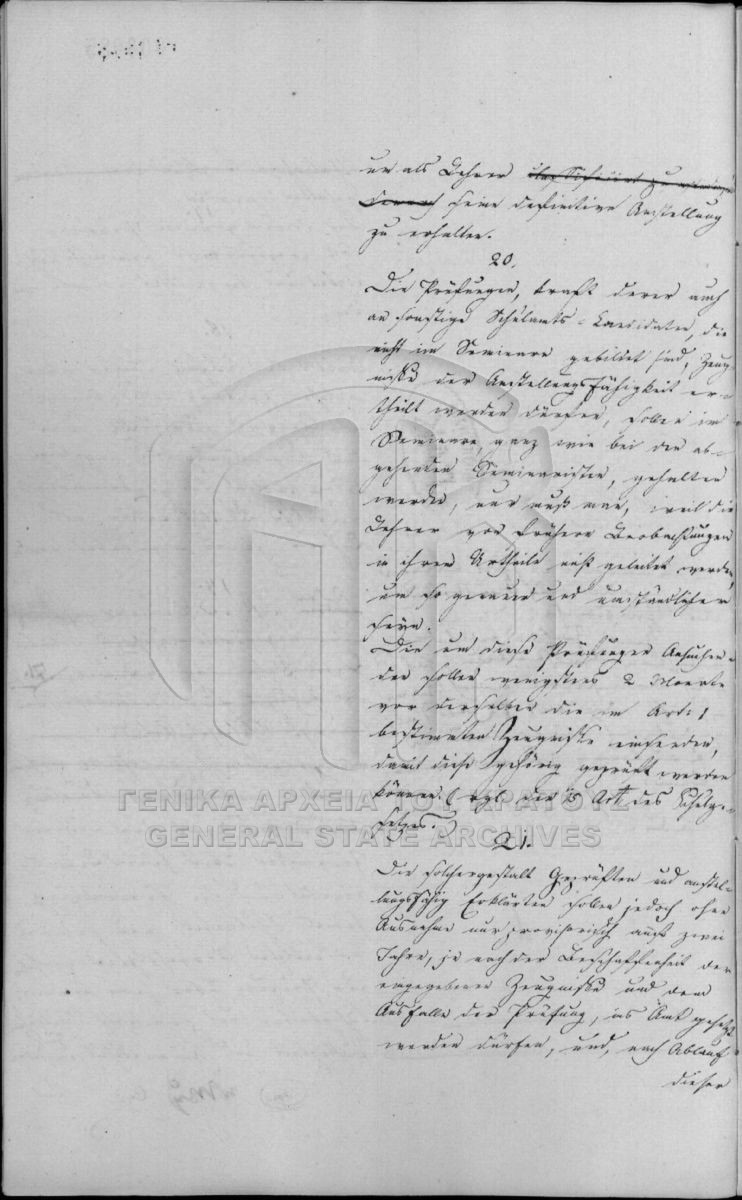 um als Lehrer
seine definitive Anstellung
zu erhalten.
20.
Die Prüfungen, kraft derer auch
an sonstige Schulamts-Candidaten, die
nicht im Seminare gebildet sind, Zeug-
nisse der Anstellungsfähigkeit er-
theilt werden dürfen, sollen im
Seminare, ganz wie bei den ab-
gehenden Seminaristen, gehalten
werden, nur muß man, weil die
Lehrer von frühern Beobachtungen
in ihrem Urtheile nicht geleitet werden,
um so genauer und umständlicher
seyn.
Die um diese Prüfungen Ansuchen-
den sollen wenigstens 2 Monate
vor derselben die im Art. 1
bestimmten Zeugnisse einsenden,
damit diese gehörig geprüft werden
können. (vgl. der 15 Art. des Schulge-
setzes.)
21.
Die solchergestalt Geprüften und anstel-
lungsfähig Erklärten sollen jedoch ohne
Ausnahme nur provisorisch auf zwei
Jahre, je nach der Beschaffenheit der
eingegebenen Zeugnisse und dem
Ausfalle der Prüfung, ins Amt gesetzt
werden dürfen, und, nach Ablauf
dieser
ΓΕΝΙΚΑ ΑΡΧΕΙΑ ΤΟΥ ΚΡΑΤΟΥΣ
GENERAL STATE ARCHIVES